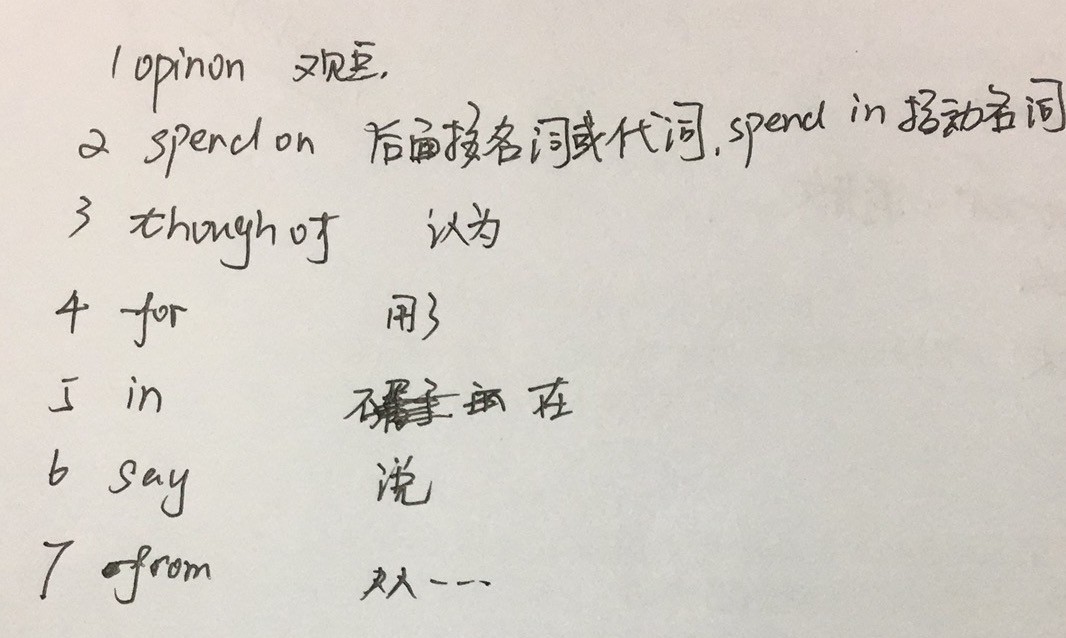 1 opinon 观点.
2 spend on 后面接名词或代词,spend in 接动名词
3 though of 认为
4 for 用了
5 in 在
6 say 说
7 from 从---